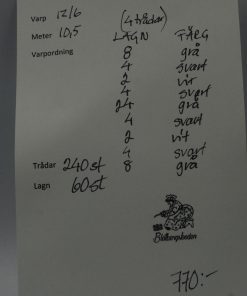 Varp 12/6 (4 trådar)
Meter 10,5 LÄGN FÄRG
Varpordning 8 grå
4 svart
2 vit
4 svart
24 grå
4 svart
2 vit
4 svart
Trådar 240 st 8 grå
Lägn 60 st
770:-